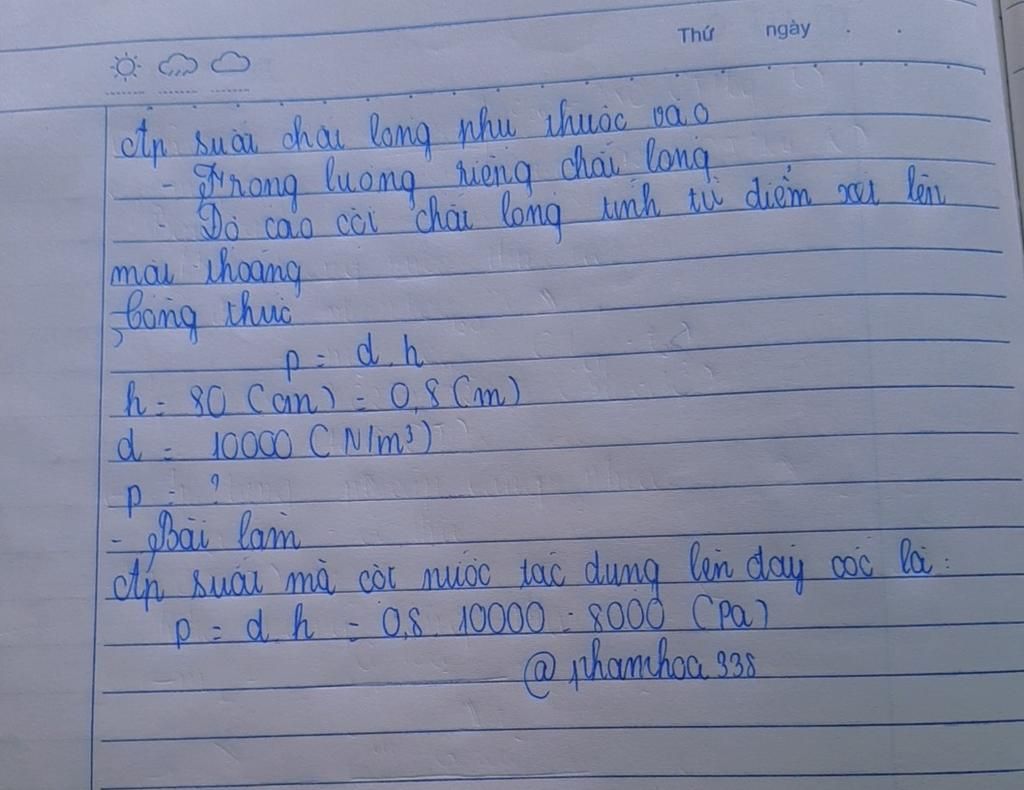 Thứ ngày
Áp suất chất lỏng phụ thuộc vào
- Trọng lượng riêng chất lỏng
- Độ cao cột chất lỏng tính từ điểm xét lên
mặt thoáng
Công thức
p = d.h
h = 80 (cm) = 0,8 (m)
d = 10000 (N/m³)
p = ?
- Bài làm
Áp suất mà cột nước tác dụng lên đáy cốc là:
p = d.h = 0,8.10000 = 8000 (Pa)
@phamhoa338